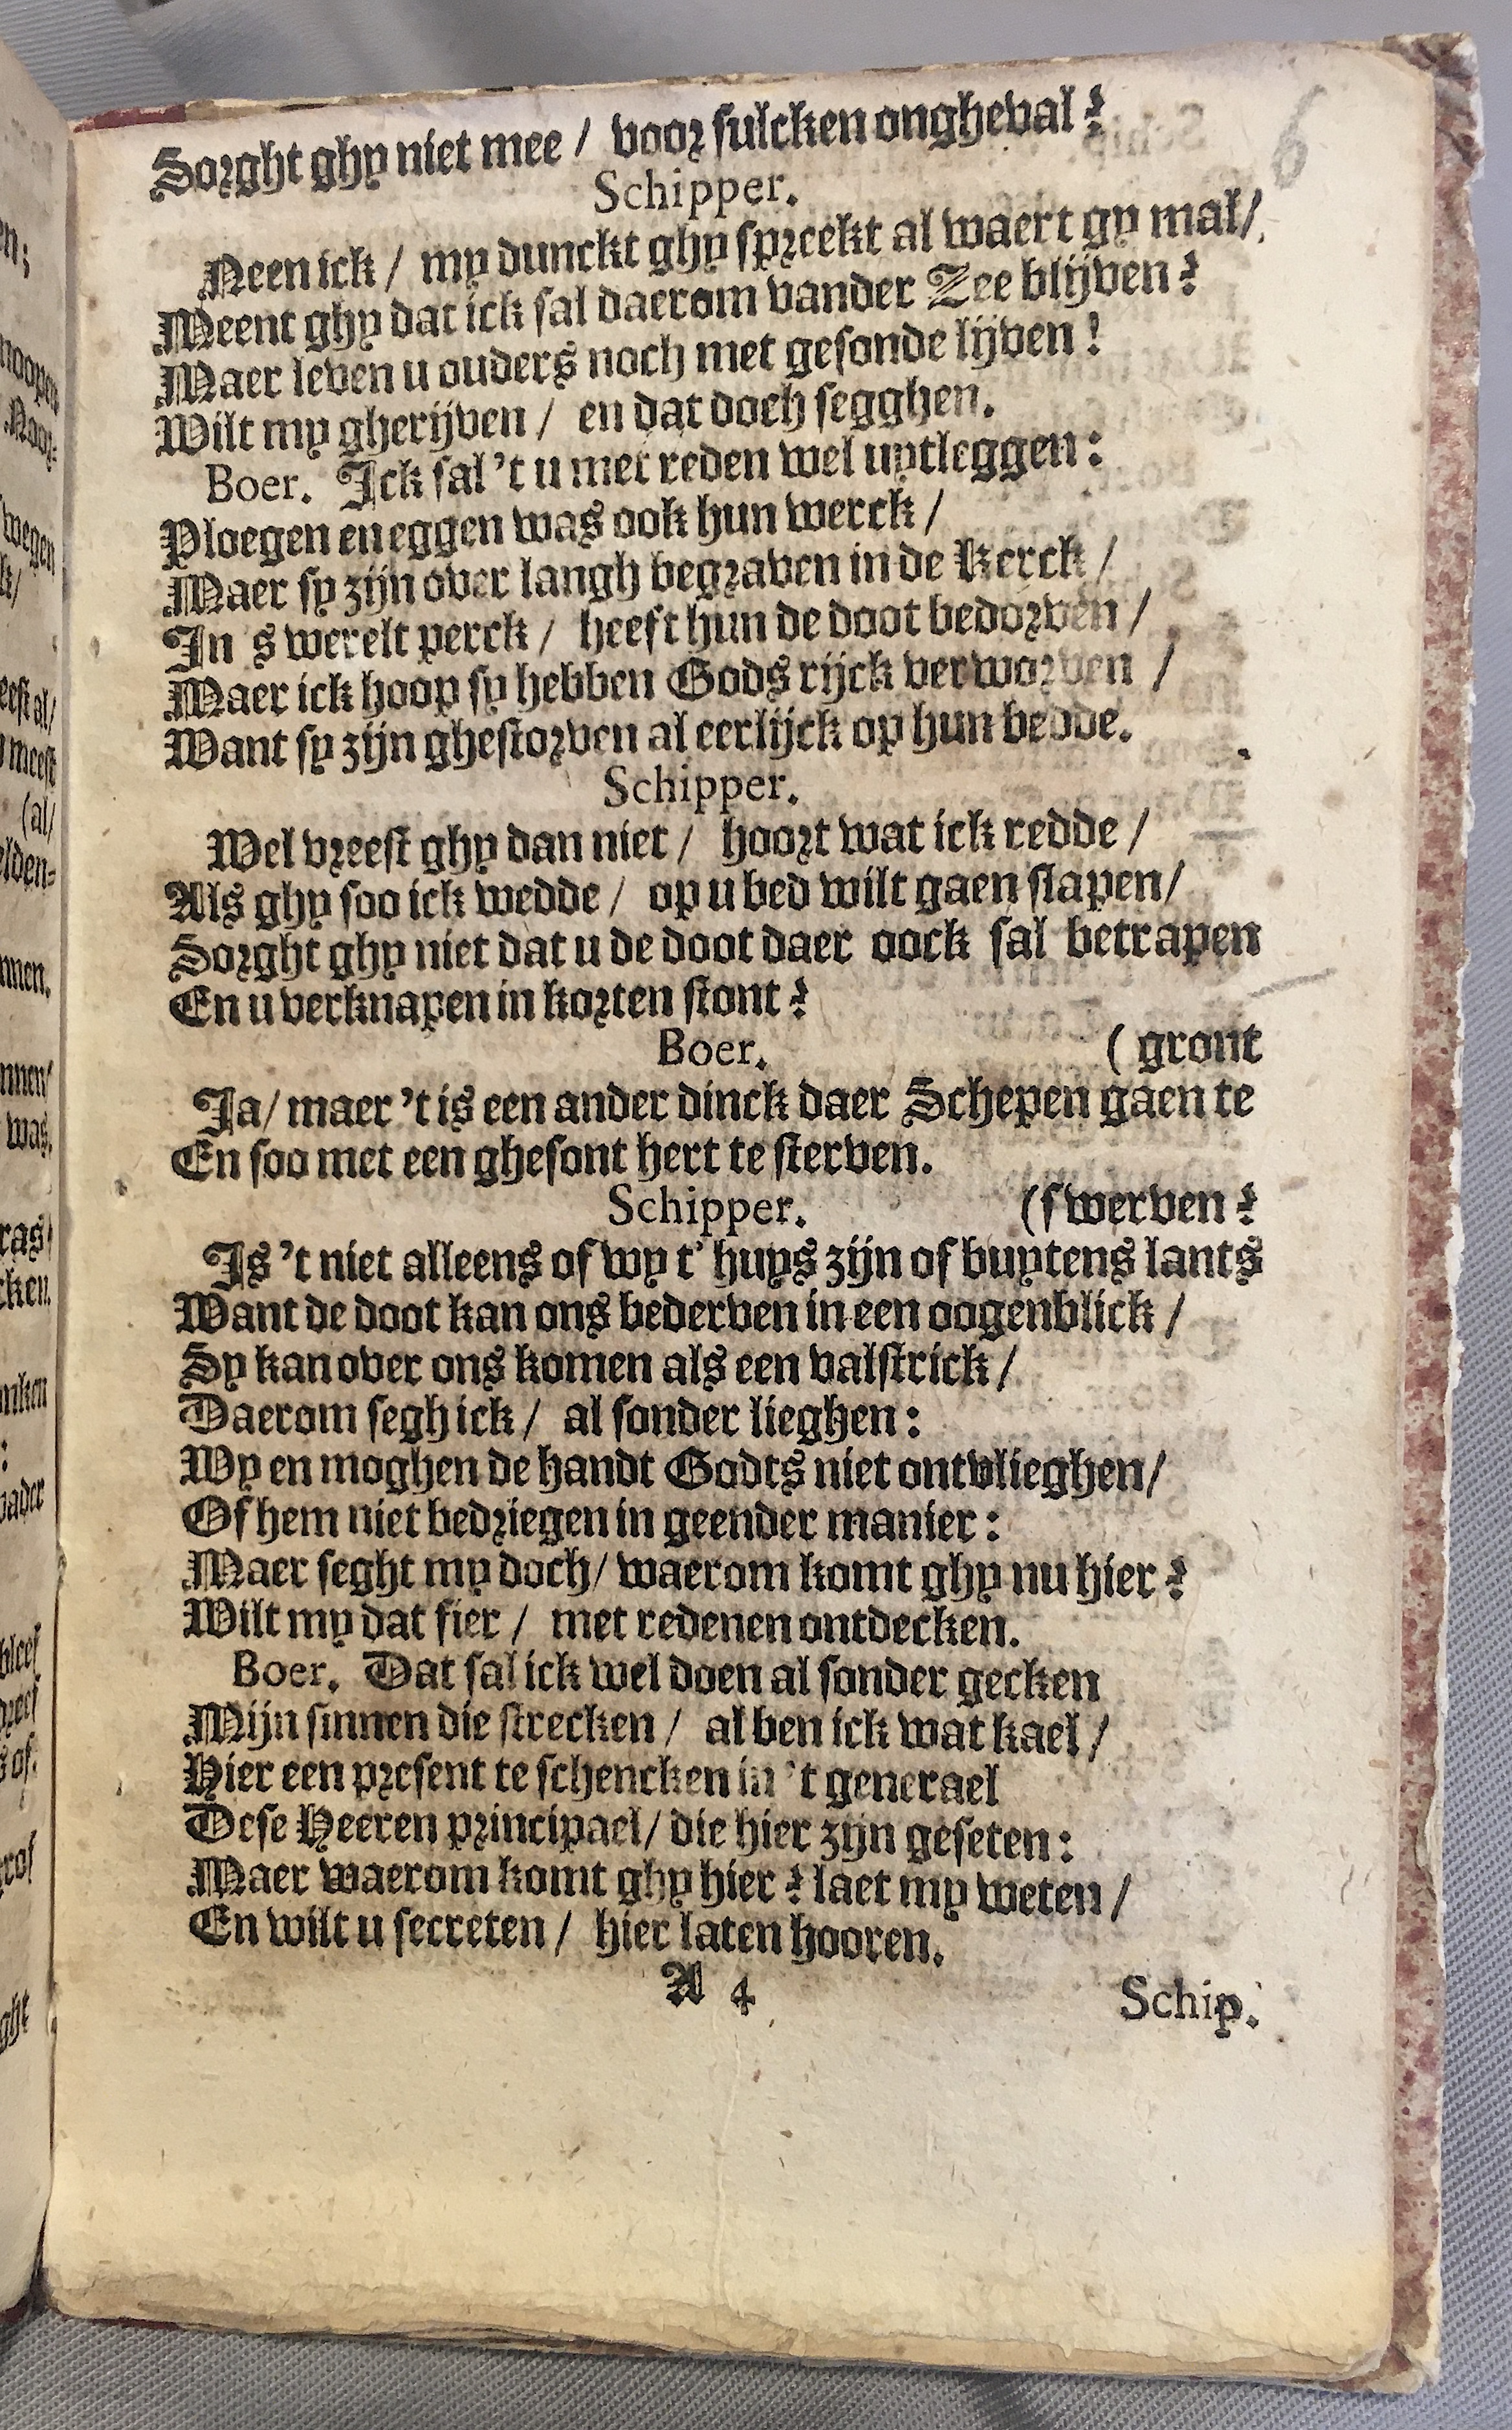 Sorght ghy niet mee / voor sulcken ongheval?
Schipper.
Neen ick / my dunckt ghy spreekt al waert gy mal/
Meent ghy dat ick sal daerom vander Zee blijven?
Maer leven u ouders noch met gesonde lijven!
Wilt my gherijven / en dat doch segghen.
Boer. Ick sal 't u met reden wel uytleggen:
Ploegen en eggen was ook hun werck /
Maer sy zijn over langh begraven in de Kerck /
In s werelt perck / heeft hun de doot bedorven /
Maer ick hoop sy hebben Gods rijck verworven /
Want sy zijn ghestorven al eerlijck op hun bedde.
Schipper.
Wel vreest ghy dan niet / hoort wat ick redde /
Als ghy soo ick wedde / op u bed wilt gaen slapen/
Sorght ghy niet dat u de doot daer oock sal betrapen
En u verknapen in korten stont?
Boer. ( gront
Ja/ maer 't is een ander dinck daer Schepen gaen te
En soo met een ghesont hert te sterven.
Schipper. (swerven?
Is 't niet alleens of wy t' huys zijn of buytens lants
Want de doot kan ons bederven in een oogenblick /
Sy kan over ons komen als een valstrick /
Daerom segh ick / al sonder lieghen:
Wy en moghen de handt Godts niet ontvlieghen/
Of hem niet bedriegen in geender manier:
Maer seght my doch/ waerom komt ghy nu hier?
Wilt my dat fier / met redenen ontdecken.
Boer. Dat sal ick wel doen al sonder gecken
Mijn sinnen die strecken / al ben ick wat kael /
Hier een present te schencken in 't generael
Dese Heeren principael/ die hier zijn geseten:
Maer waerom komt ghy hier? laet my weten /
En wilt u secreten / hier laten hooren.
A 4 Schip.